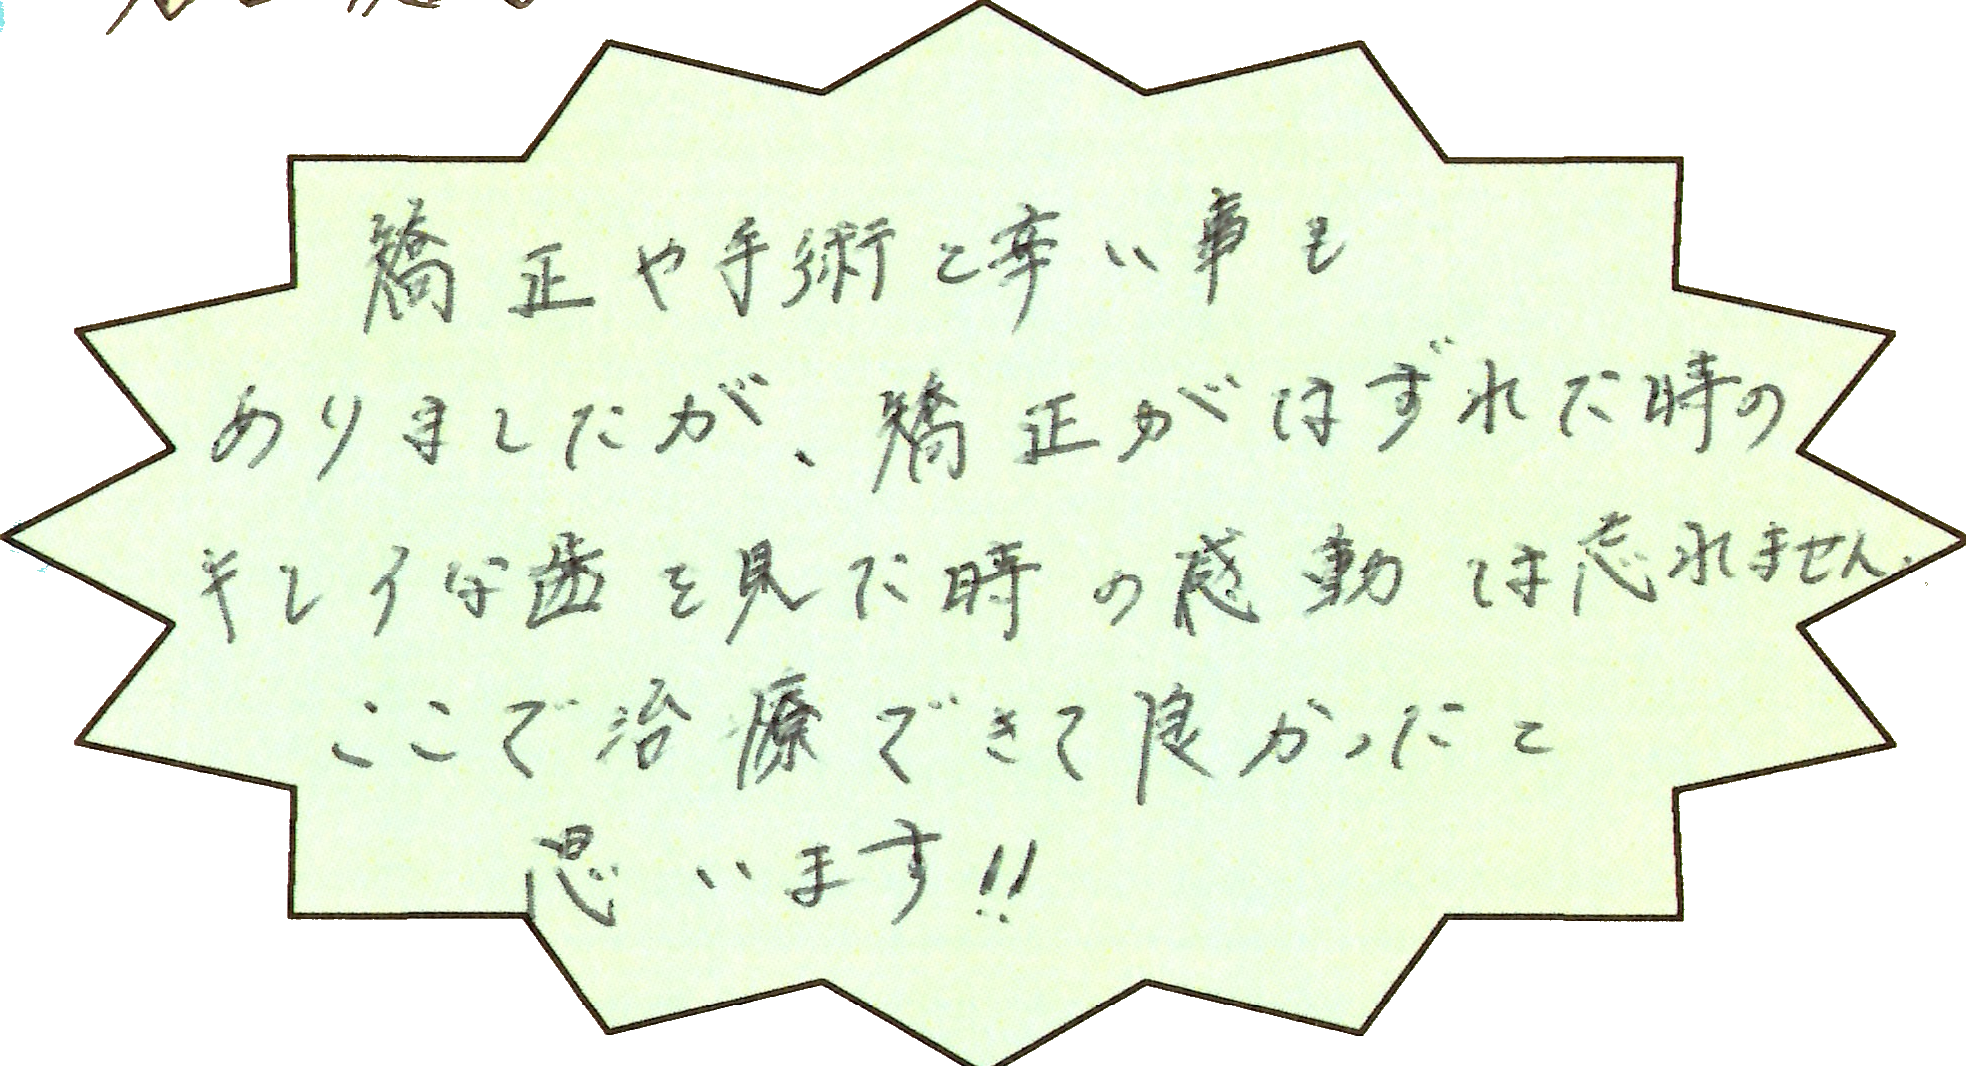 矯正や手術と辛い事も
ありましたが、矯正がはずれた時の
キレイな歯を見た時の感動は忘れません.
ここで治療できて良かったと
思います!!